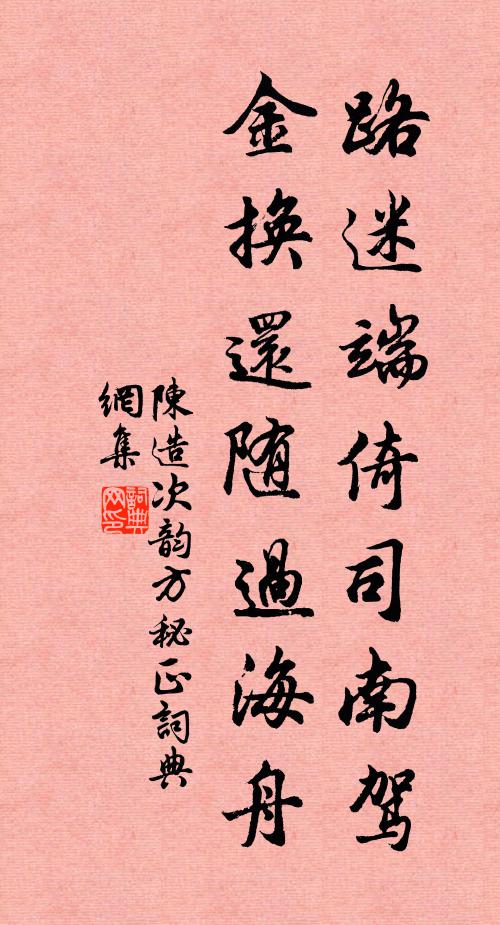 路迷端倚司南駕
金換還随過海舟
陳造次韵方秘正詞典
網集
詞典
网印